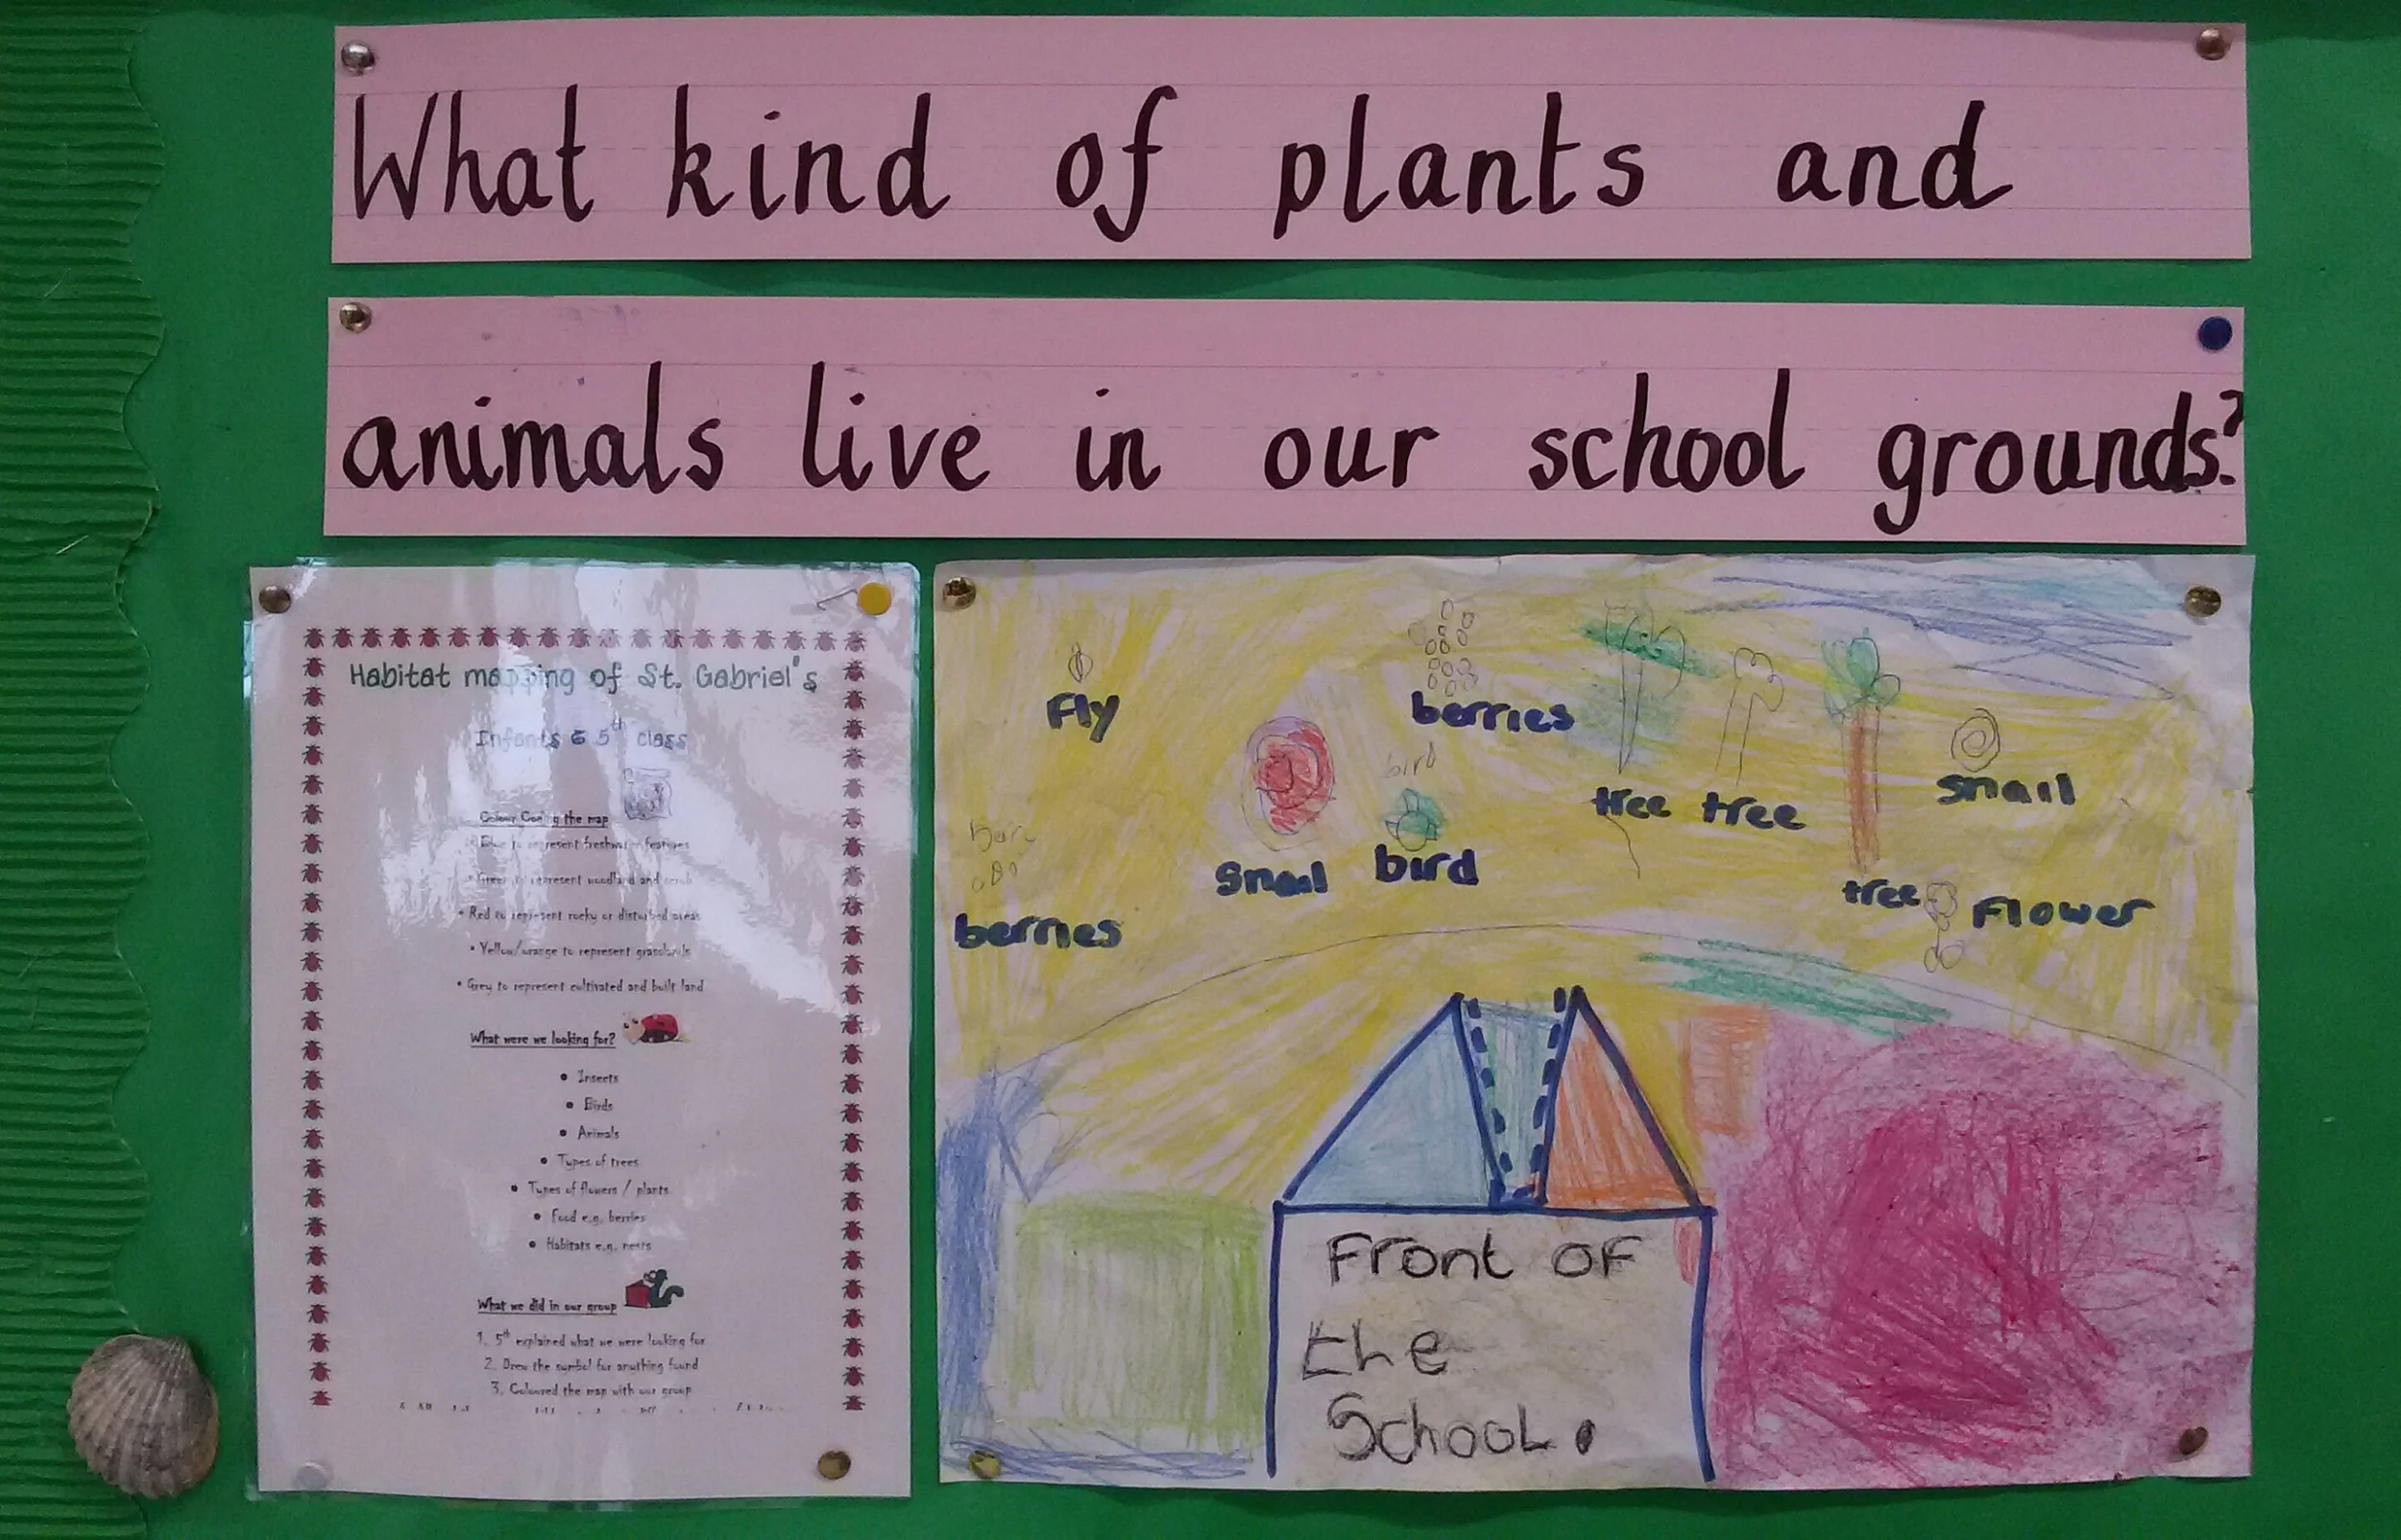 What kind of plants and
animals live in our school grounds?
Habitat mapping of St. Gabriel's
Infants & 5th class
Colour Coding the map
Blue to represent freshwater features
• Green to represent woodland and scrub
• Red to represent rocky or disturbed areas
• Yellow/orange to represent grasslands
• Grey to represent cultivated and built land
What were we looking for?
• Insects
• Birds
• Animals
• Types of trees
• Types of flowers / plants
• Food e.g. berries
• Habitats e.g. nests
What we did in our group
1. 5th explained what we were looking for
2. Drew the symbol for anything found
3. Coloured the map with our group
Fly
berries
bird
snail
bird
tree tree
snail
tree
Flower
berries
Front OF
the
School.